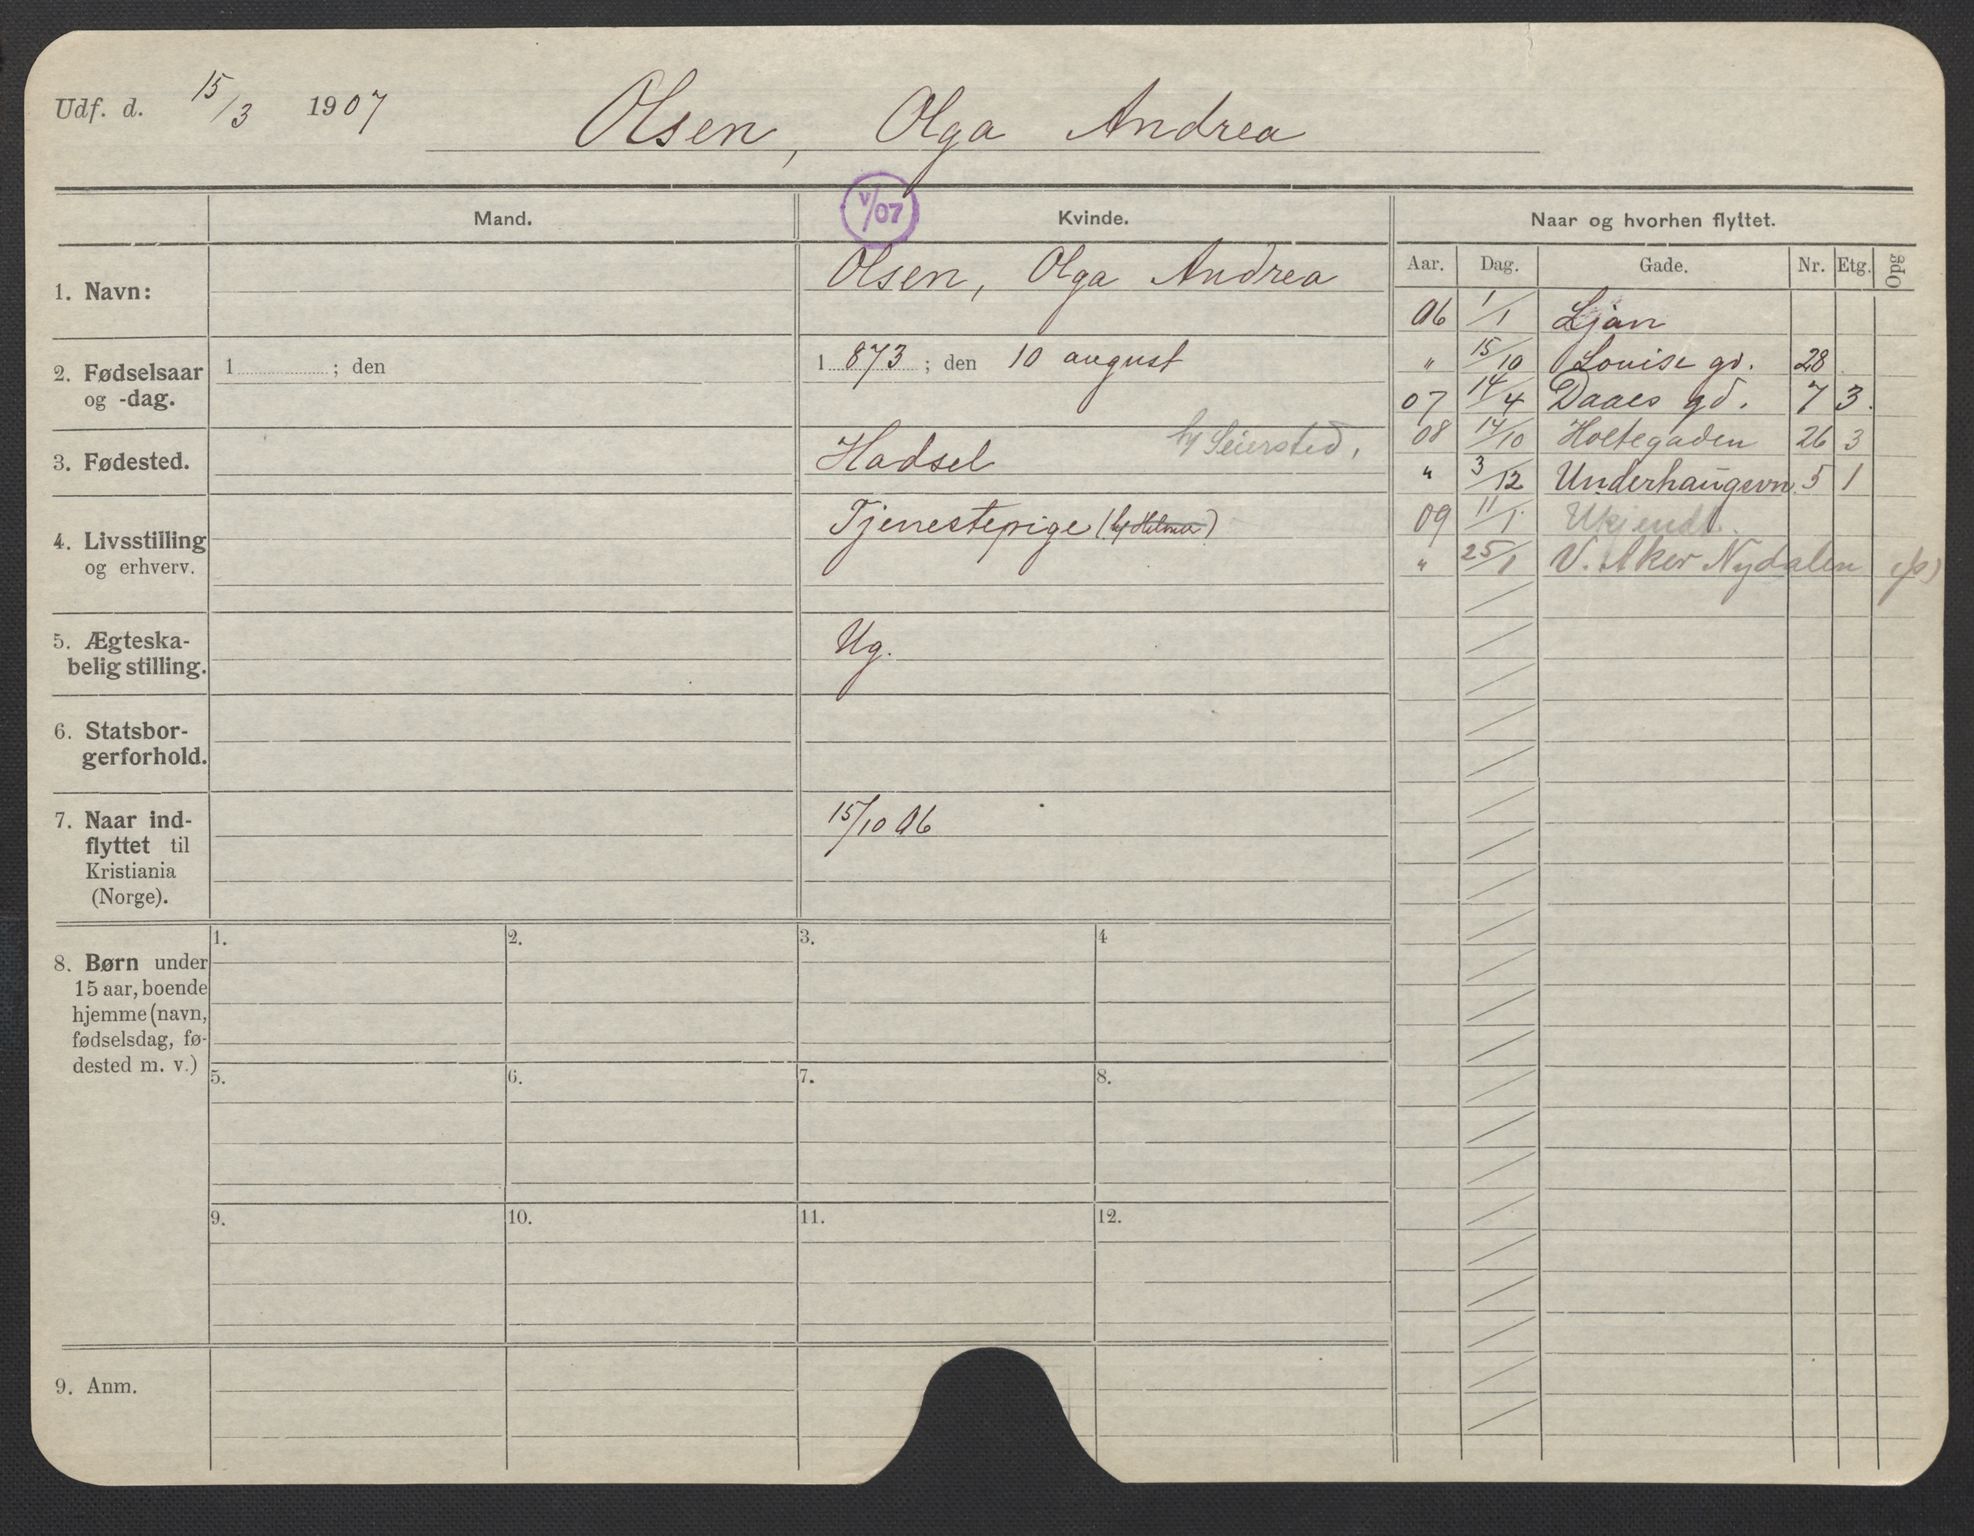 Udf. d. 15/3 1907 Olsen, Olga Andrea
Mand.
V/07
Kvinde.
Naar og hvorhen flyttet.
Aar. Dag. Gade. Nr. Etg. Opg
1. Navn:
Olsen, Olga Andrea
2. Fødselsaar
og -dag.
1 ; den
1873 ; den 10 august
3. Fødested.
Hadsel
h/ Seiersted.
4. Livsstilling
og erhverv.
Tjenestepige (h/ )
5. Ægteska-
belig stilling.
Ug.
6. Statsbor-
gerforhold.
7. Naar ind-
flyttet til
Kristiania
(Norge).
15/10 06
06 1/1 Ljan
" 15/10 Louise gd. 28
07 14/4 Daaes gd. 7 3.
08 14/10 Holtegaden 26 3
" 3/12 Underhaugsvn. 5 1
09 11/1 Ukjendt.
" 25/1 V. Aker Nydalen
8. Børn under
15 aar, boende
hjemme (navn,
fødselsdag, fø-
dested m. v.)
1. 2. 3. 4
5. 6. 7. 8.
9. 10. 11. 12.
9. Anm.